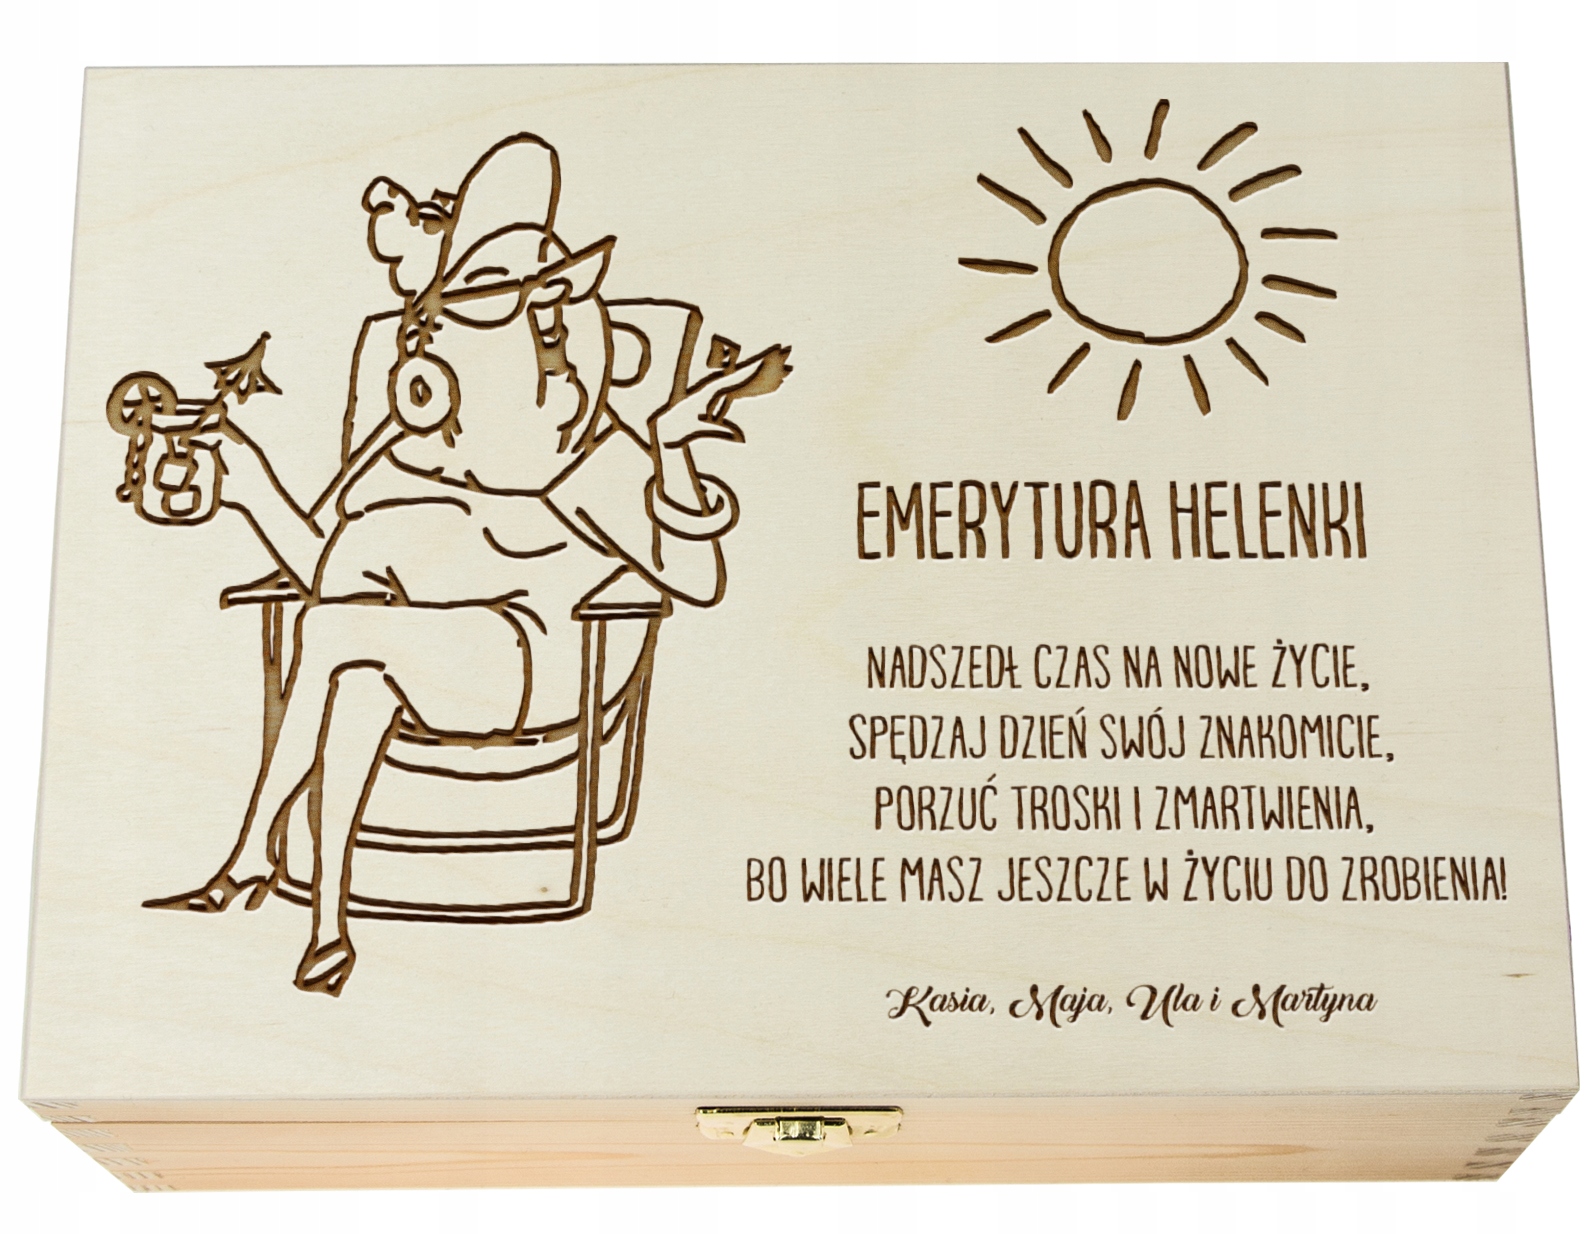 EMERYTURA HELENKI
NADSZEDŁ CZAS NA NOWE ŻYCIE,
SPĘDZAJ DZIEŃ SWÓJ ZNAKOMICIE,
PORZUĆ TROSKI I ZMARTWIENIA,
BO WIELE MASZ JESZCZE W ŻYCIU DO ZROBIENIA!
Kasia, Maja, Ula i Martyna